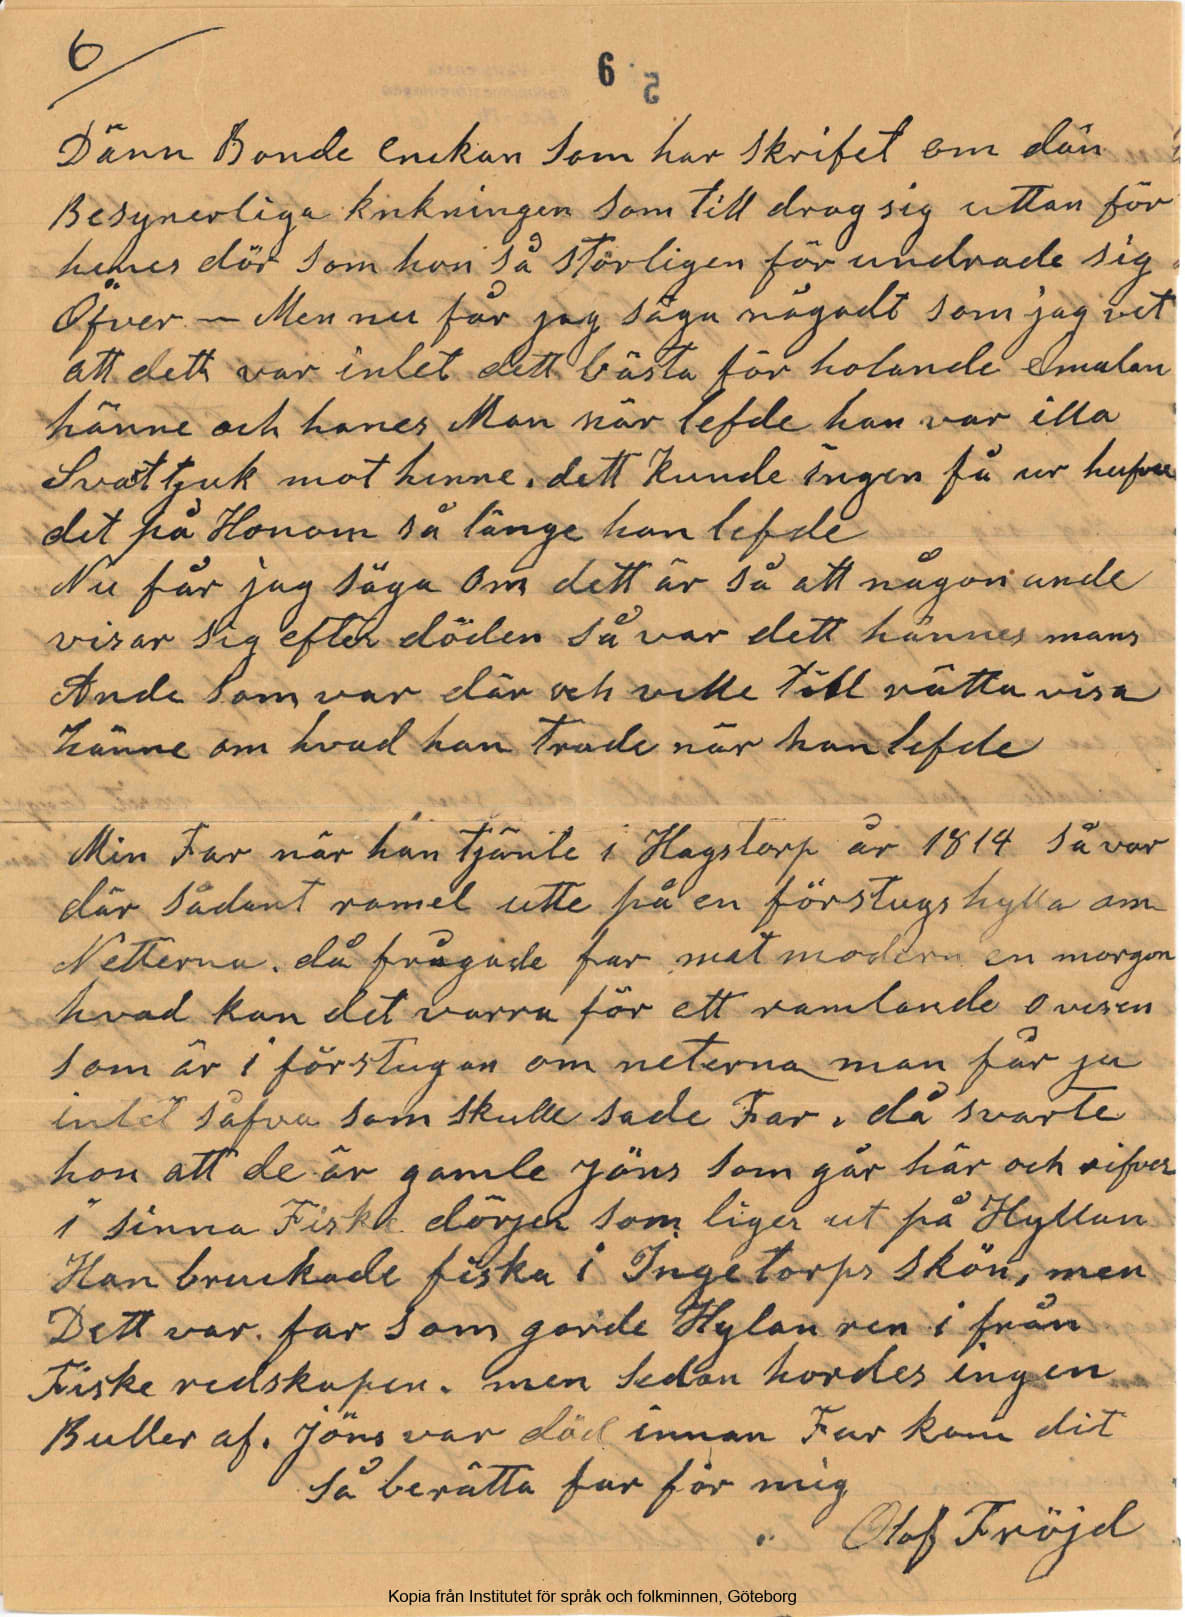 6
6 5
Dänn Bonde enckan som har skrifet om dän
Besynerliga knkningen som till drog sig uttan för
henes dör som hon så störligen för undrade sig
Öfver — Men nu får jag säga någodt som jag vet
att dett var intet dett bästa för holande emalan
hänne och hanes Man när lefde han var illa
Svattjuk mot henne. dett kunde ingen få ur hufvu
det på Honom så länge han lefde
Nu får jag säga om dett är så att någon ande
visar sig efter döden så var dett hännes mans
Ande som var där och ville till rätta visa
hänne om hvad han trode när han lefde
Min Far när han tjänte i Hagstorp år 1814 så var
där sådant ramel utte på en förstugs hylla om
Netterna. då frågade far mat modern en morgon
hvad kan det varra för ett ramlande Ovesen
som är i förstugan om neterna man får ju
intet såfva som skulle sade Far. då svarte
hon att de är gamle Jöns som går här och rifver
i sinna Fiske dörjer som liger ut på Hyllan
Han bruckade fiska i Ingetorps skön, men
Dett var. far som gorde Hylan ren i från
Fiske redskapen. men sedan hordes ingen
Buller af. Jöns var död innan Far kom dit
så berätta far för mig
Olof Fröjd
Kopia från Institutet för språk och folkminnen, Göteborg